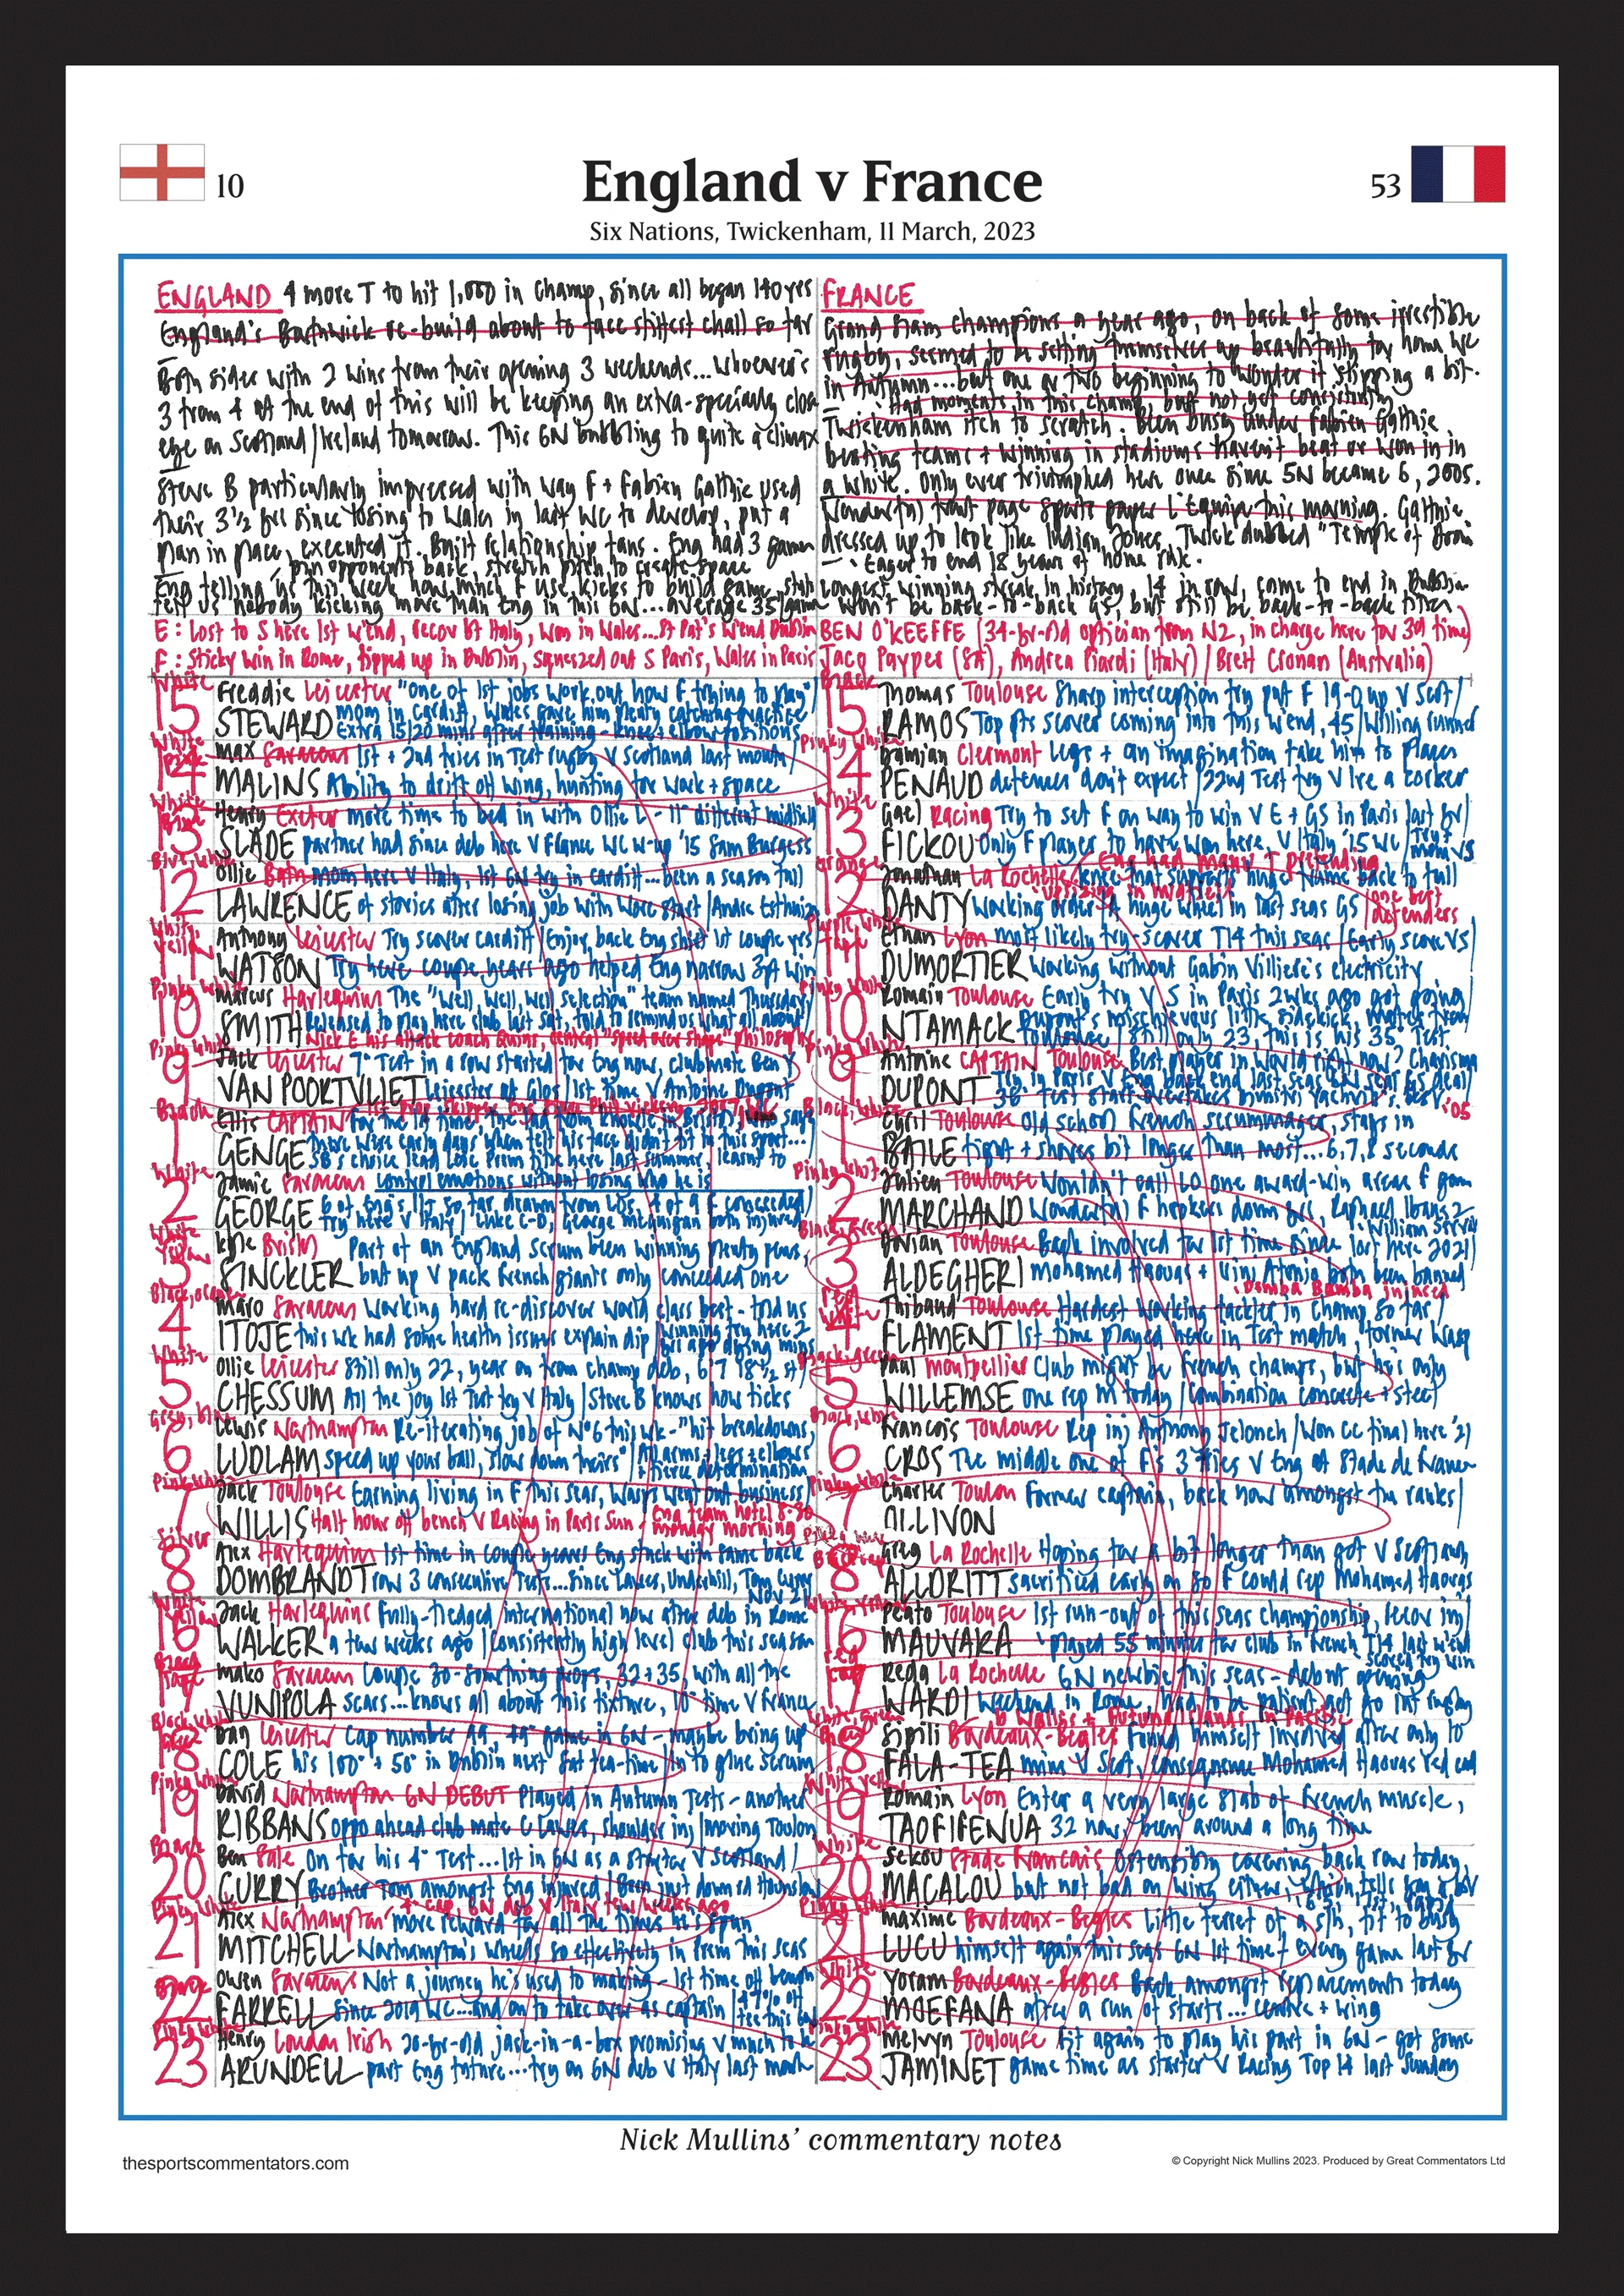 10
England v France
53
Six Nations, Twickenham, 11 March, 2023
ENGLAND 4 more T to hit 1,000 in champ, since all began 140 yrs
England's Borthwick re-build about to face stiffest chall so far
Both sides with 2 wins from their opening 3 weekends... Whoever's
3 from 4 at the end of this will be keeping an extra-specially close
eye on Scotland/Ireland tomorrow. This 6N bubbling to quite a climax
Steve B particularly impressed with way F + Fabien Galthie used
their 3½ yrs since losing to Wales in last WC to develop, put a
plan in place, executed it. Built relationship fans. Eng had 3 games
pin opponents back, stretch pitch to create space
Eng telling us this week how much F use kicks to build game, stats
tell us nobody kicking more than Eng in this 6N... average 35/game
E: Lost to S here 1st w'end, recov bt Italy, won in Wales... St Pat's w'end Dublin
F: Sticky win in Rome, tipped up in Dublin, squeezed out S Paris, Wales in Paris
FRANCE
Grand Slam champions a year ago, on back of some irrestible
rugby, seemed to be setting themselves up beautifully for home WC
in Autumn... but one or two beginning to wonder if slipping a bit.
Had moments in this champ, but not yet consistently
Twickenham itch to scratch. Been busy under Fabien Galthie
beating teams + winning in stadiums haven't beat or won in in
a white. Only ever triumphed here once since 5N became 6, 2005.
Wonderful front page sports paper L'Equipe this morning. Galthie
dressed up to look like Indian Jones, Twick dubbed "Temple of Doom
Eager to end 18 years of home
Longest winning streak in history, 14 in row, come to end in Dublin
Won't be back-to-back GS, but still be back-to-back titles
BEN O'KEEFFE (34-yr-old optician from NZ, in charge here for 3rd time)
Jacq Peyper (SA), Andrea Piardi (Italy) / Brett Cronan (Australia)
White
15 Freddie Leicester "one of 1st jobs work out how F trying to play"
STEWARD mom in Cardiff, Wales gave him plenty catching practice
Extra 15/20 mins after training - knees, elbow positions
White
14 Max Saracens 1st + 2nd tries in Test rugby V Scotland last month
MALINS Ability to drift off wing, hunting for work + space
White
13 Henry Exeter more time to bed in with Ollie L - 11th different midfield
SLADE partner had since deb here V France WC w-up '15 Sam Burgess
12 Ollie Bath mom here V Italy, 1st 6N try in Cardiff... been a season full
LAWRENCE of stories after losing job with Worc start / Andre Esterhuizen
11 Anthony Leicester Try scorer Cardiff / Enjoy back Eng shirt 1st couple yrs
WATSON Try here couple years ago helped Eng narrow 3pt win
Pinky White
10 Marcus Harlequins The "Well, well, well selection" team named Thursday
SMITH Released to play here club last Sat, told to remind us what all about
Nick E his attack coach Quins, central "speed over shape" philosophy
Pinky White
9 Jack Leicester 7th Test in a row started for Eng now, clubmate Ben Y
VAN POORTVLIET Leicester at Glos / 1st time V Antoine Dupont
Black
1 Ellis CAPTAIN for the 1st time, the lad from Knowle in Bristol, who says
GENGE there were early days when felt his face didn't fit in this sport...
SB's choice lead Leic Prem title here last summer, learnt to
control emotions without losing who he is
White
2 Jamie Saracens
GEORGE 6 of Eng's 11T so far drawn from LOs, 4 of 9 F conceded
Try here V Italy / Luke C-D, George McGuigan both injured
White
3 Kyle Bristol Part of an England scrum been winning plenty pens,
SINCKLER but up V pack French giants only conceded one
Black, orange
4 Maro Saracens Working hard re-discover world class best - told us
ITOJE this wk had some health issues explain dip / winning try here 2
yrs ago dying mins
White
5 Ollie Leicester Still only 22, year on from champ deb, 6'7 18½ st
CHESSUM All the joy 1st Test try V Italy / Steve B knows how ticks
6 Lewis Northampton Re-iterating job of No6 this wk - "hit breakdowns,
LUDLAM speed up your ball, slow down theirs" / All arms, legs + elbows
+ fierce determination
Pink White
7 Jack Toulouse Earning living in F this seas, Wasps went out business
WILLIS Half hour off bench V Racing in Paris Sun, Eng team hotel 8-30
monday morning
Silver
8 Alex Harlequins 1st time in couple years Eng stuck with same back
DOMBRANDT row 3 consecutive Tests... since Lawes, Underhill, Tom Curry
Nov 21
White Yellow
16 Jack Harlequins Fully-fledged international now after deb in Rome
WALKER a few weeks ago / Consistently high level club this season
Black
17 Mako Saracens Couple 30-something props, 32 + 35, with all the
VUNIPOLA scars... knows all about this fixture, 10th time V France
Black, White
18 Dan Leicester Cap number 99 - 49th game in 6N - maybe bring up
COLE his 100th + 50th in Dublin next Sat tea-time / In to glue scrum
Pinky White
19 David Northampton 6N DEBUT Played in Autumn Tests - another
RIBBANS oppo ahead club mate C Lawes, shoulder inj / Moving Toulon
Black
20 Ben Sale On for his 4th Test... 1st in 6N as a starter V Scotland
CURRY Brother Tom amongst Eng injured / Been just down rd Hounslow
Pinky White
4th cap, 6N deb V Italy few weeks ago
21 Alex Northampton more reward for all the times he's spun
MITCHELL Northampton's wheels so effectively in Prem this seas
22 Owen Saracens Not a journey he's used to making - 1st time off bench
FARRELL since 2019 WC... and on to take over as captain
Pinky White
23 Henry London Irish 20-yr-old jack-in-a-box promising V much to be
ARUNDELL part Eng future... try on 6N deb V Italy last month
Black
15 Thomas Toulouse Sharp interception try put F 19-0 up V Scot
RAMOS Top pts scorer coming into this w'end, 45 / Willing runner
Pinky White
14 Damian Clermont Legs + an imagination take him to places
PENAUD defences don't expect / 22nd Test try V Ire a corker
White
13 Gael Racing Try to set F on way to win V E + GS in Paris last yr
FICKOU Only F player to have won here, V Italy '15 WC / Try +
mom V S
Orange
Eng had many T defending
12 Jonathan La Rochelle knee that supports huge frame back to full
DANTY Working order / A huge wheel in last seas GS / one best
defenders
11 Ethan Lyon most likely try-scorer T14 this seas / Early score V S
DUMORTIER Working without Gabin Villiere's electricity
Pinky White
10 Romain Toulouse Early try V S in Paris 2wks ago got going
NTAMACK Dupont's mischievous little sidekick, mates from
Toulouse / Still only 23, this is his 35th Test
Pinky White
9 Antoine CAPTAIN Toulouse Best player in world right now? Charisma
DUPONT Try in Paris V Eng back end last seas 6N seal GS deal
Black, White
1 Cyril Toulouse Old school French scrummager, stays in
BAILLE tight + shoves bit longer than most... 6,7,8 seconds
Pinky White
2 Julien Toulouse Wouldn't call LO one award-win areas F game
MARCHAND Wonderful F hookers down yrs, Raphael Ibanez
William Servat
Black, Green
3 Dorian Toulouse Back involved for 1st time since lost here 2021
ALDEGHERI Mohamed Haouas + Uini Atonio both been banned
Demba Bamba injured
4 Thibaud Toulouse Hardest working tackler in champ so far
FLAMENT 1st time played here in Test match, former Wasp
Black, green
5 Paul Montpellier Club might be French champs, but he's only
WILLEMSE one rep in today / Combination concrete + steel
Black, White
6 Francois Toulouse Rep inj Anthony Jelonch / Won CC final here '21
CROS The middle one of F's 3 tries V Eng at Stade de France
Pinky White
7 Charles Toulon Former captain, back now amongst the ranks
OLLIVON
8 Greg La Rochelle Hoping for a bit longer than got V Scotland
ALLDRITT sacrificed early on so F could rep Mohamed Haouas
White, Yellow
16 Peato Toulouse 1st run-out of this seas championship, recov inj
MAUVAKA Played 55 minutes for club in French T14 last w'end
scored try win
17 Reda La Rochelle 6N newbie this seas - debut opening
WARDI weekend in Rome, had to be patient
to Wallis + Futuna Islands in Pacific
18 Sipili Bordeaux-Begles Found himself involved after only 10
FALA-TEA mins V Scot, consequence Mohamed Haouas red card
19 Romain Lyon Enter a very large slab of French muscle,
TAOFIFENUA 32 now, been around a long time
White
20 Sekou Stade Francais Ostensibly covering back row today,
MACALOU but not bad on wing either
Pinky White
21 Maxime Bordeaux-Begles Little ferret of a s/h, fit to busy
LUCU himself again this seas 6N 1st time + every game last yr
White
22 Yoram Bordeaux-Begles Back amongst replacements today
MOEFANA after a run of starts... centre + wing
Pinky White
23 Melvyn Toulouse Fit again to play his part in 6N - got some
JAMINET game time as starter V Racing Top 14 last Sunday
Nick Mullins' commentary notes
thesportscommentators.com
© Copyright Nick Mullins 2023. Produced by Great Commentators Ltd